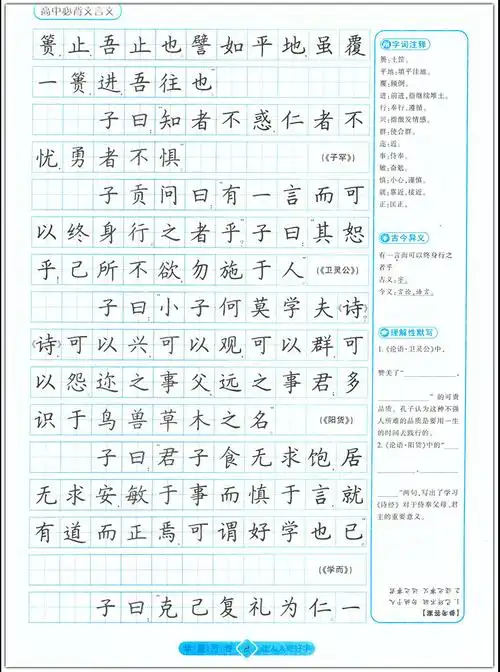 高中必背文言文
篑,止,吾止也;譬如平地,虽覆
一篑,进,吾往也。”
子曰:“知者不惑,仁者不
忧,勇者不惧。”(《子罕》)
子贡问曰:“有一言而可
以终身行之者乎?”子曰:“其恕
乎!己所不欲,勿施于人。”(《卫灵公》)
子曰:“小子何莫学夫《诗》?
《诗》可以兴,可以观,可以群,可
以怨。迩之事父,远之事君;多
识于鸟兽草木之名。”(《阳货》)
子曰:“君子食无求饱,居
无求安,敏于事而慎于言,就
有道而正焉,可谓好学也已。”
(《学而》)
子曰:“克己复礼为仁。一
字词注释
篑:土筐。
平地:填平洼地。
覆:倾倒。
进:前进,指继续堆土。
行:奉行,遵循。
兴:指激发情感。
群:使合群。
迩:近。
事:侍奉。
敏:奋勉。
慎:小心,谨慎。
就:靠近,接近。
正:匡正。
古今异义
有一言而可以终身行之
者乎
古义:字。
今义:言论,语言。
理解性默写
1.《论语·卫灵公》中,
赞美了“
”的可贵
品质。孔子认为这种不强
人所难的品质是要用一生
的时间去践行的。
2.《论语·阳货》中的“
”两句,写出了学习
《诗经》对于侍奉父母、君
主的重要意义。
【参考答案】
1.己所不欲 勿施于人
2.迩之事父 远之事君